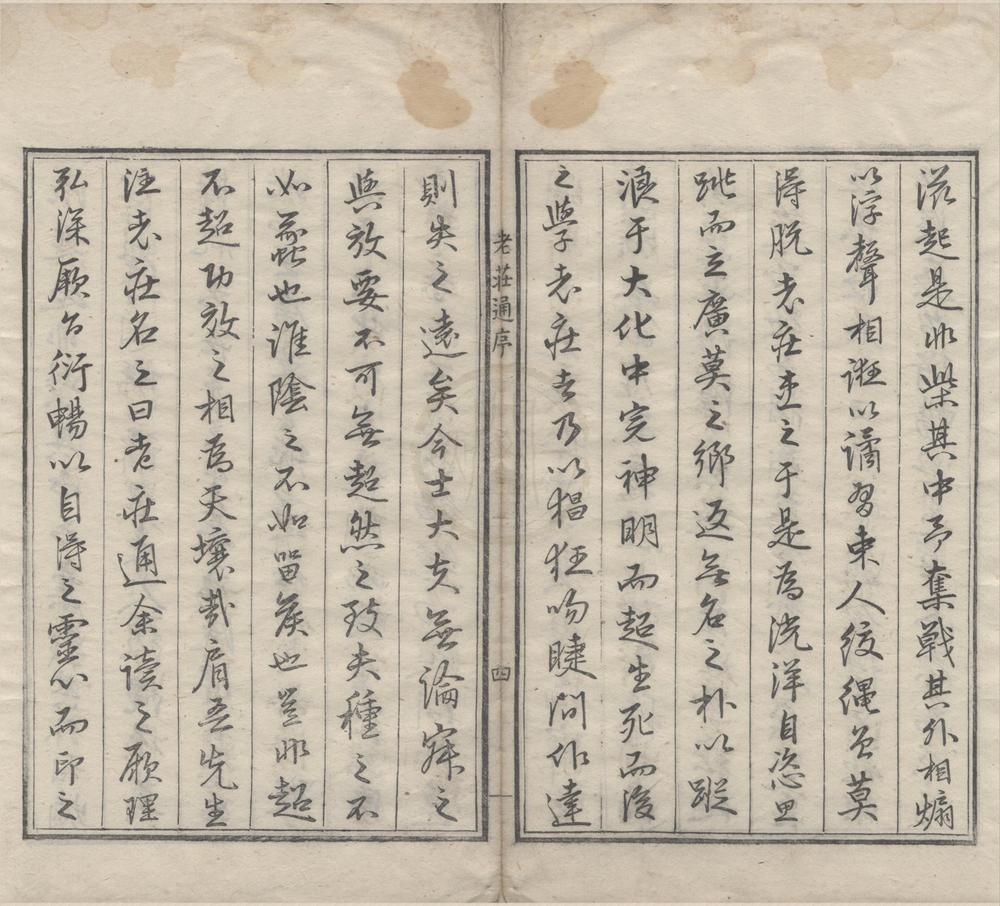 滋起是非柴其中予奪戰其外相煽
以浮聲相誑以譎習束人絞繩莫
得脫老莊之于是爲洸洋自恣
而立廣莫之鄉返無名之朴以蹤
浪于大化中完神明而超生死而後
之學老莊者乃以猖狂吻睫間作達
老莊通序
四
則失之遠矣今士大夫無論寐之
與放要不可無超然之致夫種之不
如蠡也淮陰之不如留侯也豈非超
不超功效之相爲天壤哉肩吾先生
注老莊名之曰老莊通余讀之厥理
弘深厥旨衍暢以自得之靈心而印之